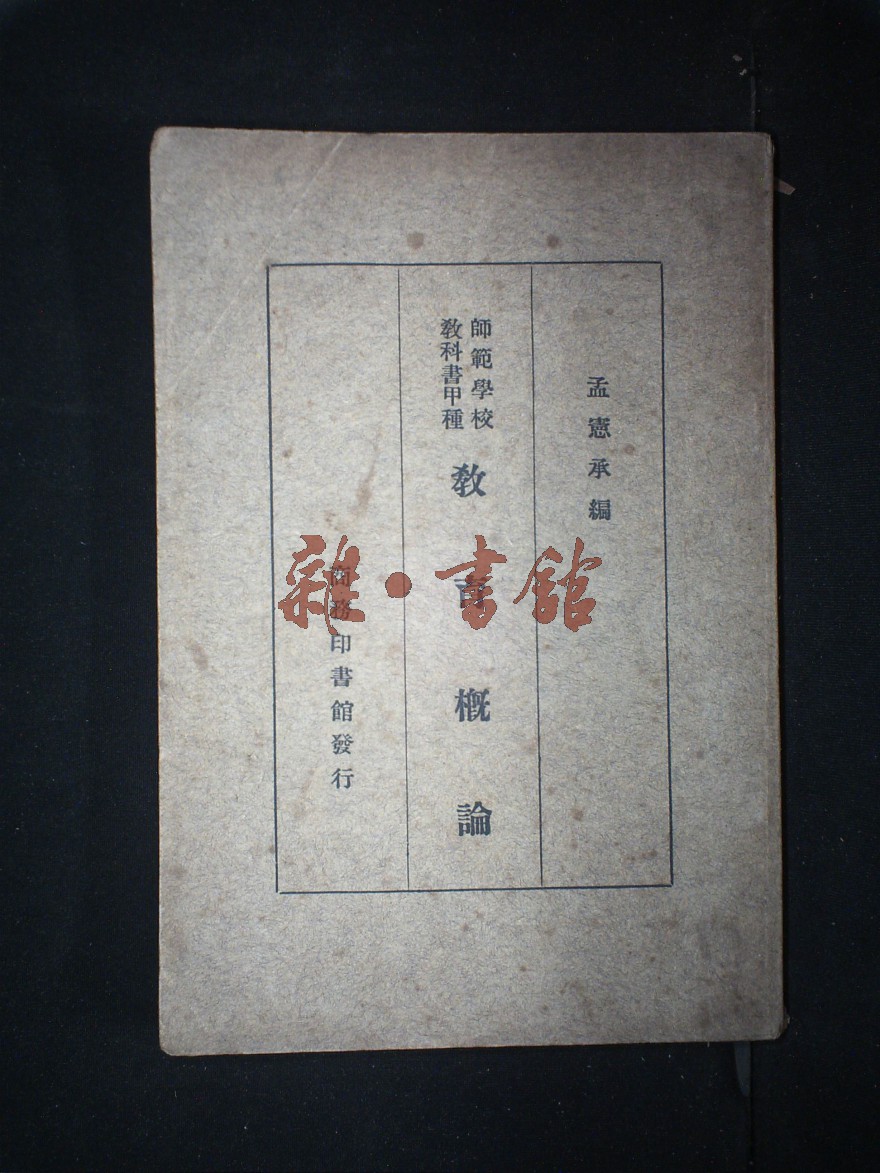 孟憲承編
師範學校
教科書甲種
教育概論
商務印書館發行
雜·書館